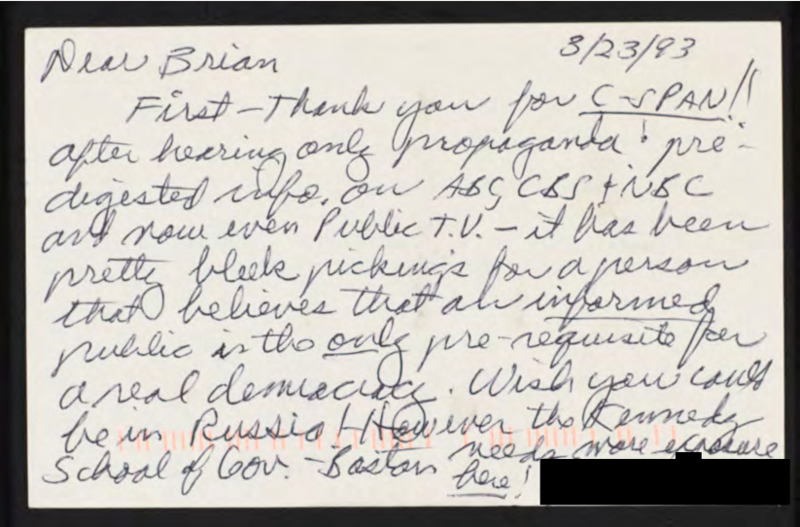 3/23/93
Dear Brian
First - Thank you for C-SPAN!!
after hearing only propaganda & pre-
digested info. on ABC, CBS & NBC
and now even Public T.V. - it has been
pretty bleek pickings for a person
that believes that an informed
public is the only pre-requisite for
a real democracy. Wish you could
be in Russia! However the Kennedy
School of Gov. - Boston needs more exposure
here!